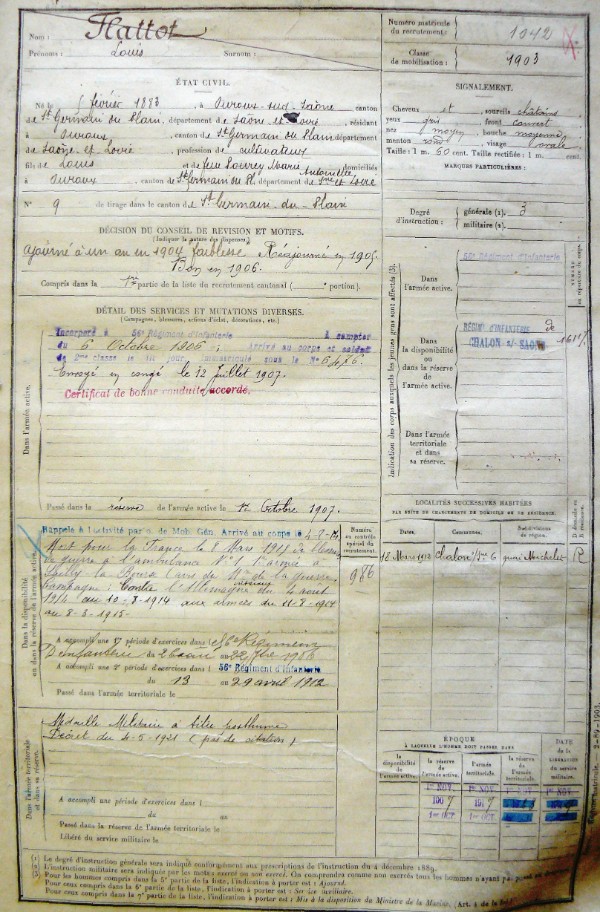 Nom : Flattot
Prénoms : Louis Surnom :
Numéro matricule du recrutement : 1042
Classe de mobilisation : 1903
ÉTAT CIVIL.
Né le 5 février 1883, à Ouroux-sur-Saône canton
de St Germain du Plain, département de Saône et Loire, résidant
à Ouroux, canton de St Germain du Plain département
de Saône et Loire, profession de cultivateur
fils de Louis et de feue Marie Antoinette domiciliés
à Ouroux, canton de St Germain du Pl. département de Sne et Loire
N° 9 de tirage dans le canton de St Germain-du-Plain
SIGNALEMENT.
Cheveux et sourcils châtains
yeux gris front couvert
nez moyen bouche moyenne
menton rond visage ovale
Taille : 1 m. 60 cent. Taille rectifiée : 1 m. cent.
MARQUES PARTICULIÈRES :
Degré d'instruction : générale (1). 3
militaire (2).
DÉCISION DU CONSEIL DE REVISION ET MOTIFS.
(Indiquer la nature des dispenses)
Ajourné à un an en 1904 faiblesse Réajourné en 1905
Bon en 1906.
Compris dans la 1re partie de la liste du recrutement cantonal ( portion).
DÉTAIL DES SERVICES ET MUTATIONS DIVERSES.
(Campagnes, blessures, actions d'éclat, décorations, etc.)
Dans l'armée active.
Incorporé à 56e Régiment d'Infanterie à compter
du 6 Octobre 1906 ; Arrivé au corps et soldat
de 2me classe le dit jour Immatriculé sous le N°
Envoyé en congé le 12 Juillet 1907.
Certificat de bonne conduite accordé.
Passé dans la réserve de l'armée active le Octobre 1907.
Indication des corps auxquels les jeunes gens sont affectés (3).
Dans l'armée active.
56e Régiment d'Infanterie
Dans la disponibilité ou dans la réserve de l'armée active.
RÉGIMT D'INFANTERIE de
CHALON s/ SAÔNE
Dans l'armée territoriale et dans sa réserve.
LOCALITÉS SUCCESSIVES HABITÉES
PAR SUITE DE CHANGEMENTS DE DOMICILE OU DE RÉSIDENCE.
Dates. Communes. Subdivisions de région. D. domicile ou R. résidence
18 Mars 1912 Chalon 6 quai R
Dans la disponibilité ou dans la réserve de l'armée active.
Rappelé à l'activité par o. de Mob. Gén. Arrivé au corps le 4-8-14
Mort pour la France le 8 Mars 1915 de blessures
de guerre à l'ambulance
Sailly la Bourse avis de Mre de la guerre
Campagne : Contre l'Allemagne intérieur du 4 août
1914 au 10-8-1914 aux armées du 11-8-1914
au 8-3-1915.
Numéro au contrôle spécial du recrutement.
986
A accompli une 1re période d'exercices dans 56e Régiment
D'Infanterie du 26 août au 22
A accompli une 2e période d'exercices dans 56e Régiment d'Infanterie
du 13 au 29 avril 1912
Passé dans l'armée territoriale le
Dans l'armée territoriale et dans sa réserve.
Médaille Militaire à titre posthume
Décret du 4-5-1921 (pas de citation)
A accompli une période d'exercices dans
du au
Passé dans la réserve de l'armée territoriale le
Libéré du service militaire le
ÉPOQUE
À LAQUELLE L'HOMME DOIT PASSER DANS
la disponibilité de l'armée active. la réserve de l'armée active. l'armée territoriale. la réserve de l'armée territoriale.
DATE DE LA LIBÉRATION du service militaire.
1er NOV. 1er NOV. 1er NOV. 1er NOV.
1907 1917
1er OCT 1er OCT
(1) Le degré d'instruction générale sera indiqué conformément aux prescriptions de l'instruction du 4 décembre 1889.
(2) L'instruction militaire sera indiquée par les mots : exercé ou non exercé.
Pour les hommes compris dans la 5e partie de la liste, l'indication à porter est : Ajourné.
Pour ceux compris dans la 6e partie de la liste, l'indication à porter est : Service auxiliaire.
Pour ceux compris dans la 7e partie de la liste, l'indication à porter est : Mis à la disposition du Ministre de la Marine.